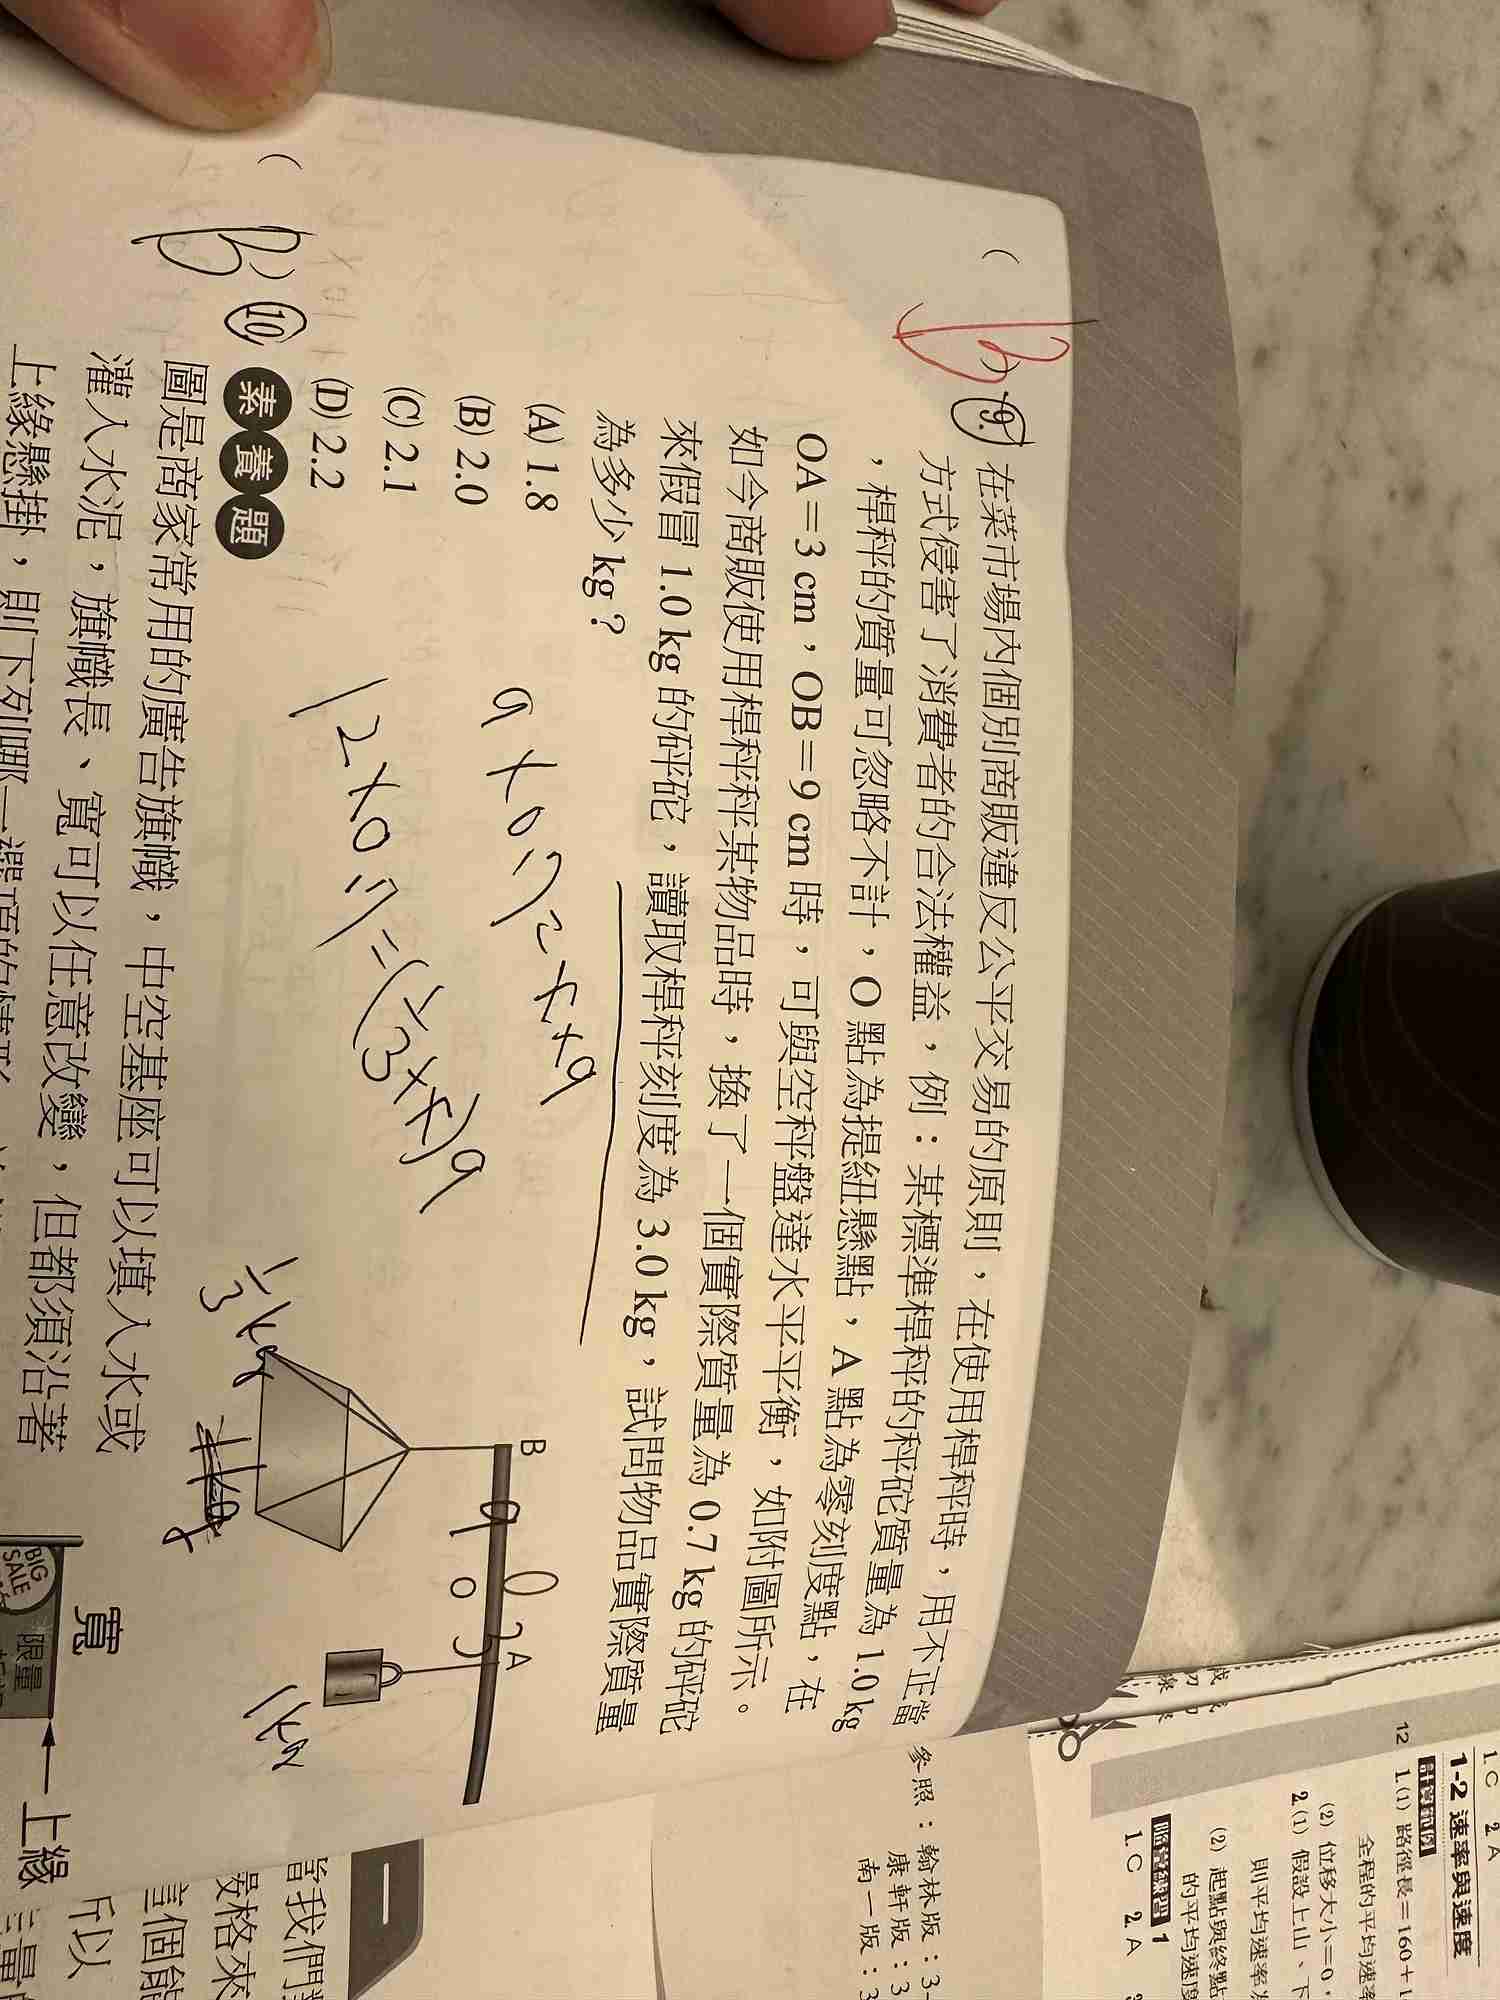 B 9. 在菜市場內個別商販違反公平交易的原則，在使用桿秤時，用不正當
方式侵害了消費者的合法權益，例：某標準桿秤的秤砣質量為 1.0 kg
，桿秤的質量可忽略不計，O 點為提紐懸點，A 點為零刻度點，在
OA＝3 cm，OB＝9 cm 時，可與空秤盤達水平平衡，如附圖所示。
如今商販使用桿秤秤某物品時，換了一個實際質量為 0.7 kg 的砰砣
來假冒 1.0 kg 的砰砣，讀取桿秤刻度為 3.0 kg，試問物品實際質量
為多少 kg？
(A) 1.8
(B) 2.0
(C) 2.1
(D) 2.2
12×0.7=(1/3+x)9
B
A
O
9
3
1/3 kg
1kg
B 10 素養題
圖是商家常用的廣告旗幟，中空基座可以填入水或
灌入水泥，旗幟長、寬可以任意改變，但都須沿著
上緣懸掛，則下列哪一選項的情形
寬
上緣
BIG
SALE
限量
1-2 速率與速度
1.C 2.A
12 1.(1) 路徑長＝160＋1
全程的平均速率
(2) 位移大小＝0，
2.(1) 假設上山、下
則平均速率
(2) 起點與終點
的平均速度
1.C 2.A
參照：翰林版：3-
康軒版：3
南一版：3
當我們
嚴格來
這個能
斤以